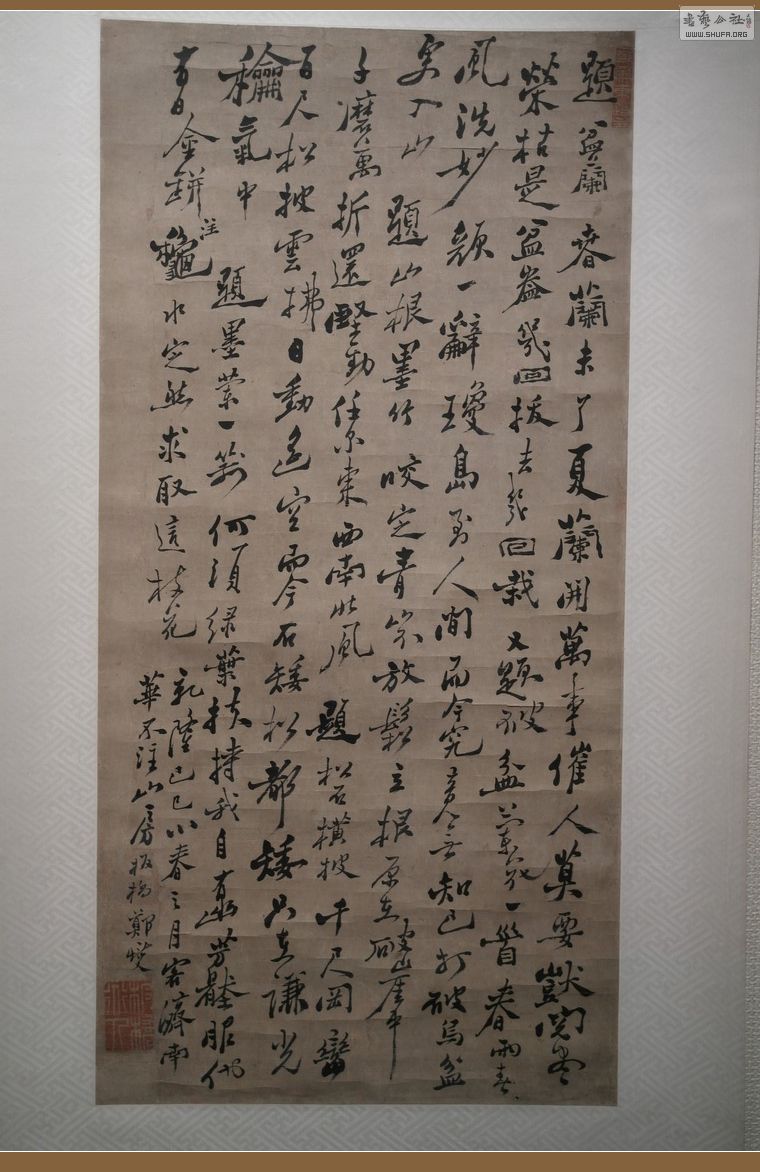 題盆蘭 春蘭未了夏蘭開萬事催人莫要獃閱盡
榮枯是盆盎幾回拔去幾回栽 又題破盆蘭花一首 春雨春
風洗妙顏一辭瓊島到人間而今究竟無知己打破烏盆
更入山 題山根墨竹 咬定青山不放鬆立根原在破崖中
千磨萬折還堅勁任尔東西南北風 題松石橫披 千尺岡巒
百尺松披雲拂日動遙空而今石矮松都矮只在謙光
龢氣中 題墨蘭一箭 何須綠葉扶持我自
昔日金缾注龝水定然求取這枝花
乾隆己巳小春之月客濟南
華不注山房板橋鄭燮
WWW.SHUFA.ORG